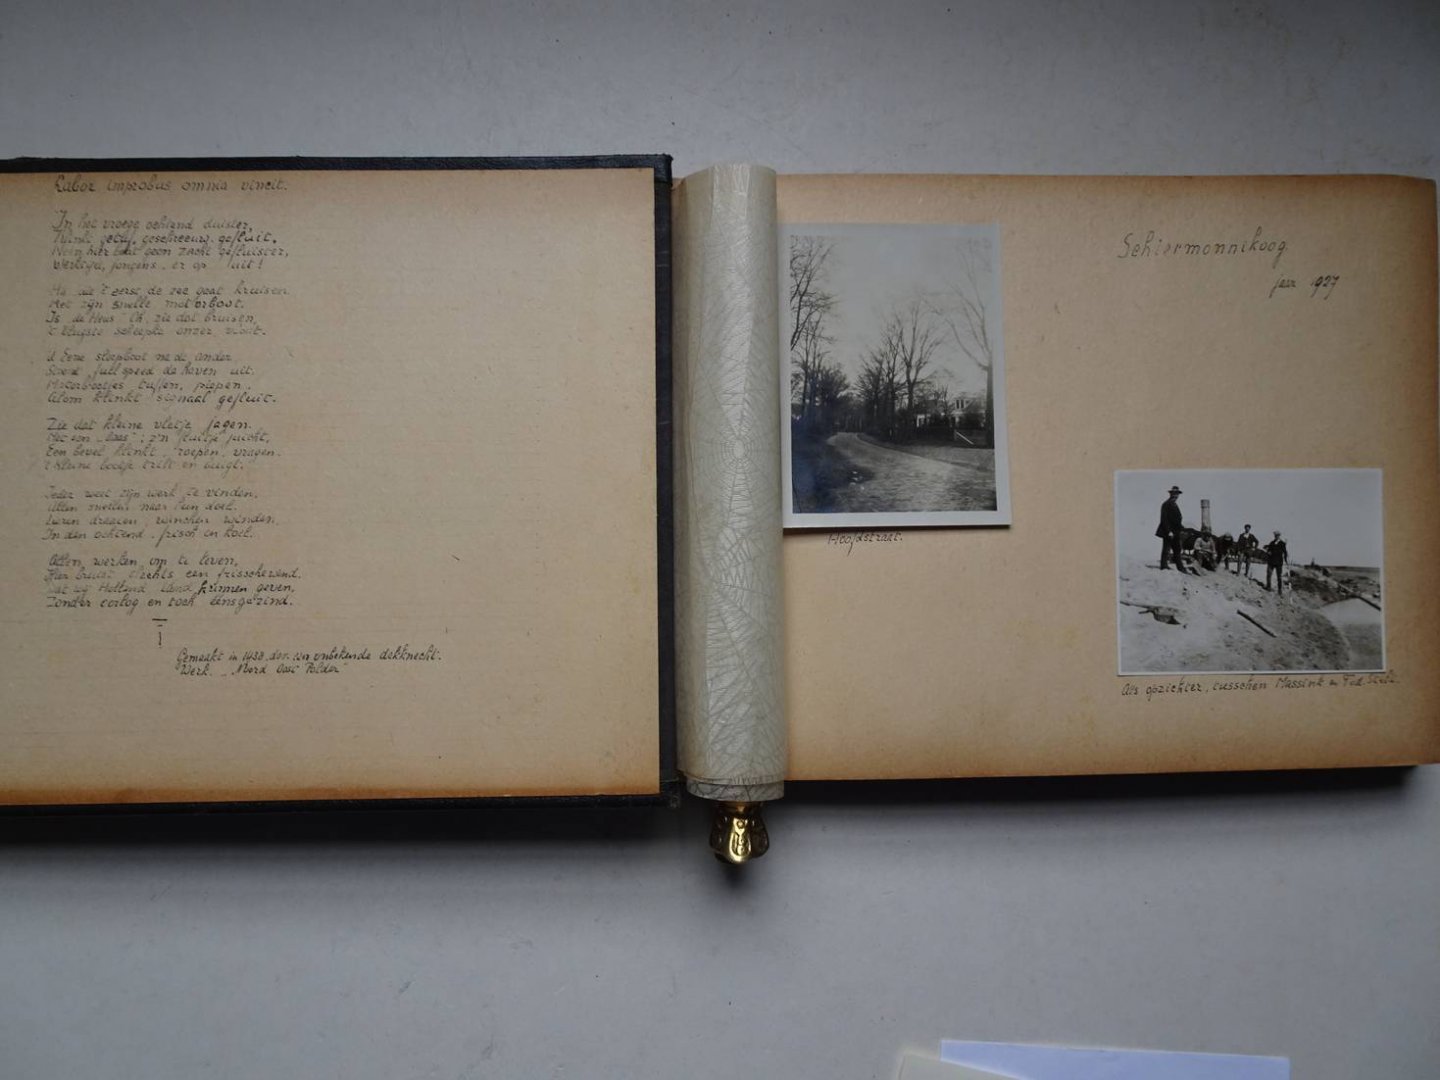 Labor improbus omnia vincit.
In het vroege ochtend duister,
Klinkt getuf, geschreeuw, gefluit.
Neen hier geen zacht gefluister,
jongens, er op uit!
Ha, die 't eerst de zee gaat kruisen
Met zijn snelle motorboot.
Is de zie dat bruisen,
scheepke onzer vloot.
d'Eene sleepboot na de ander
Stoomt "full speed" de haven uit.
Motorbootjes tuffen, piepen,
Alom klinkt signaal gefluit.
Zie dat kleine vletje jagen.
Met een "baas"; z'n fluitje juicht,
Een bevel klinkt, roepen, vragen.
't Kleine bootje trilt en buigt.
Ieder weet zijn werk te vinden,
Allen snellen naar hun doel.
draaien, winchen winden,
In den ochtend, frisch en koel.
Allen, werken om te leven,
Hier bruist slechts een frissche wind.
Dat wij Holland land kunnen geven,
Zonder oorlog en toch eensgezind.
Gemaakt in 1938 door een onbekende dekknecht.
Werk. "Noord Oost Polder"
Schiermonnikoog
jaar 1927
Hoofdstraat.
Als opzichter, tusschen Massink en